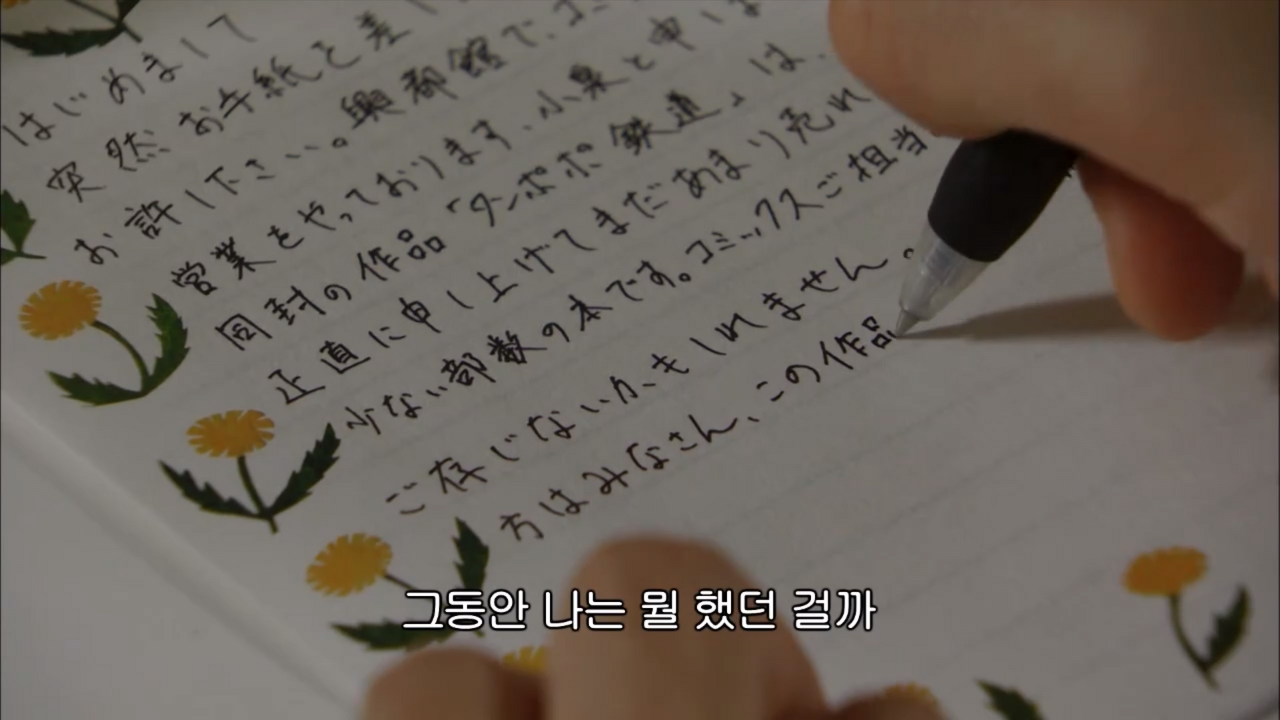 はじめまして
突然お手紙を差し
お許し下さい。興都館で、コミ
営業をやっております、小泉と申しま
同封の作品「タンポポ鉄道」は、
正直に申し上げてまだあまり売れ
少ない部数の本です。コミックスご担当
ご存じないかもしれません。
方はみなさん、この作品
그동안 나는 뭘 했던 걸까